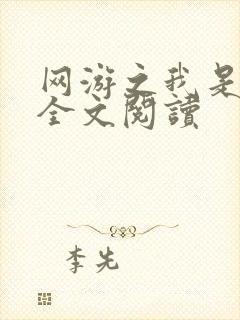 网游之我是
全文閱讀
李先